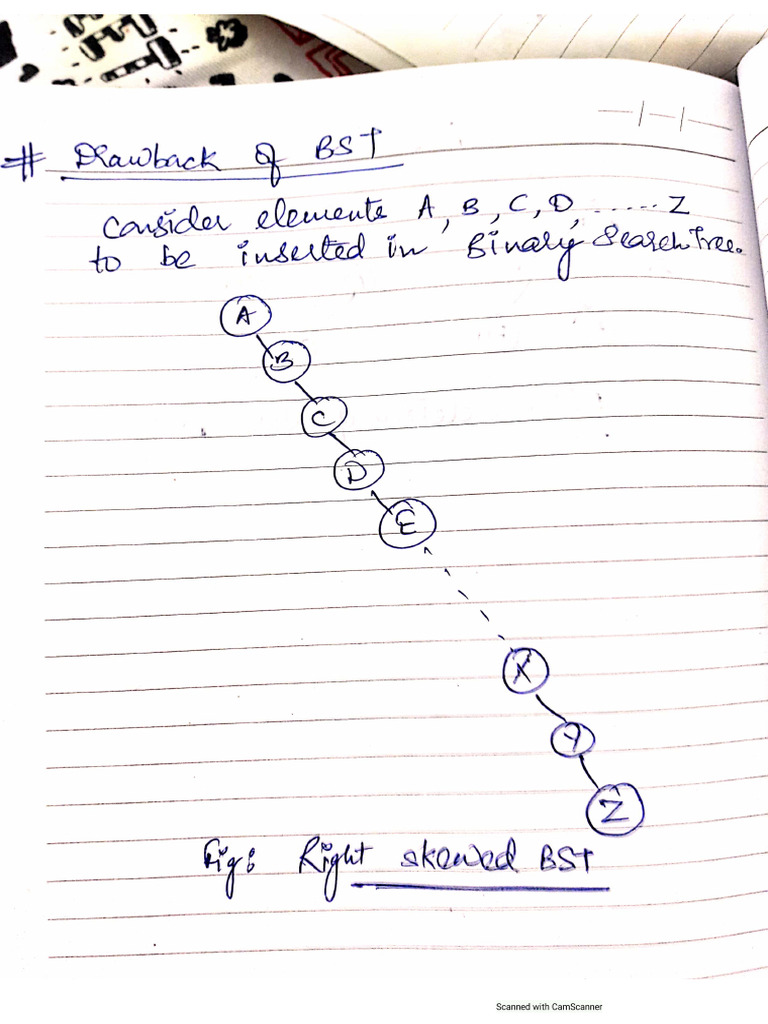 # Drawback of BST
Consider elements A, B, C, D, ..... Z
to be inserted in Binary Search Tree.
A
B
C
D
E
X
Y
Z
Fig: Right skewed BST
Scanned with CamScanner